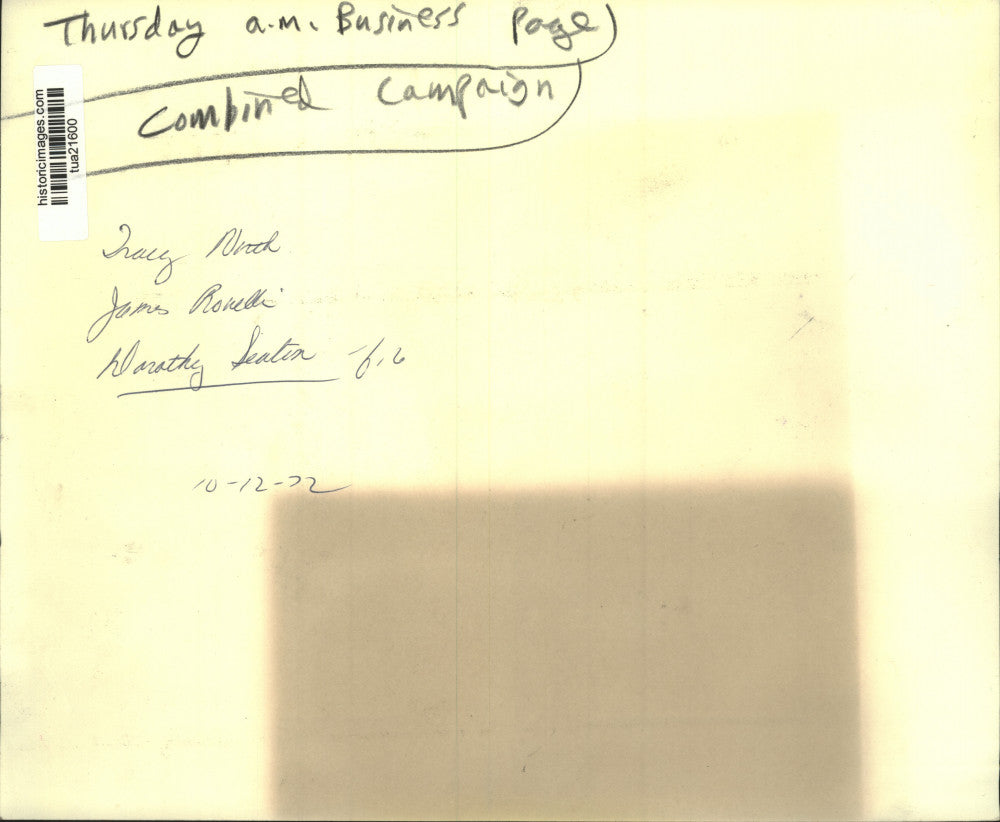 Thursday a.m. Business Page)
Combined Campaign
historicimages.com
tua21600
Tracy North
James
Dorothy Seaton
10-12-72